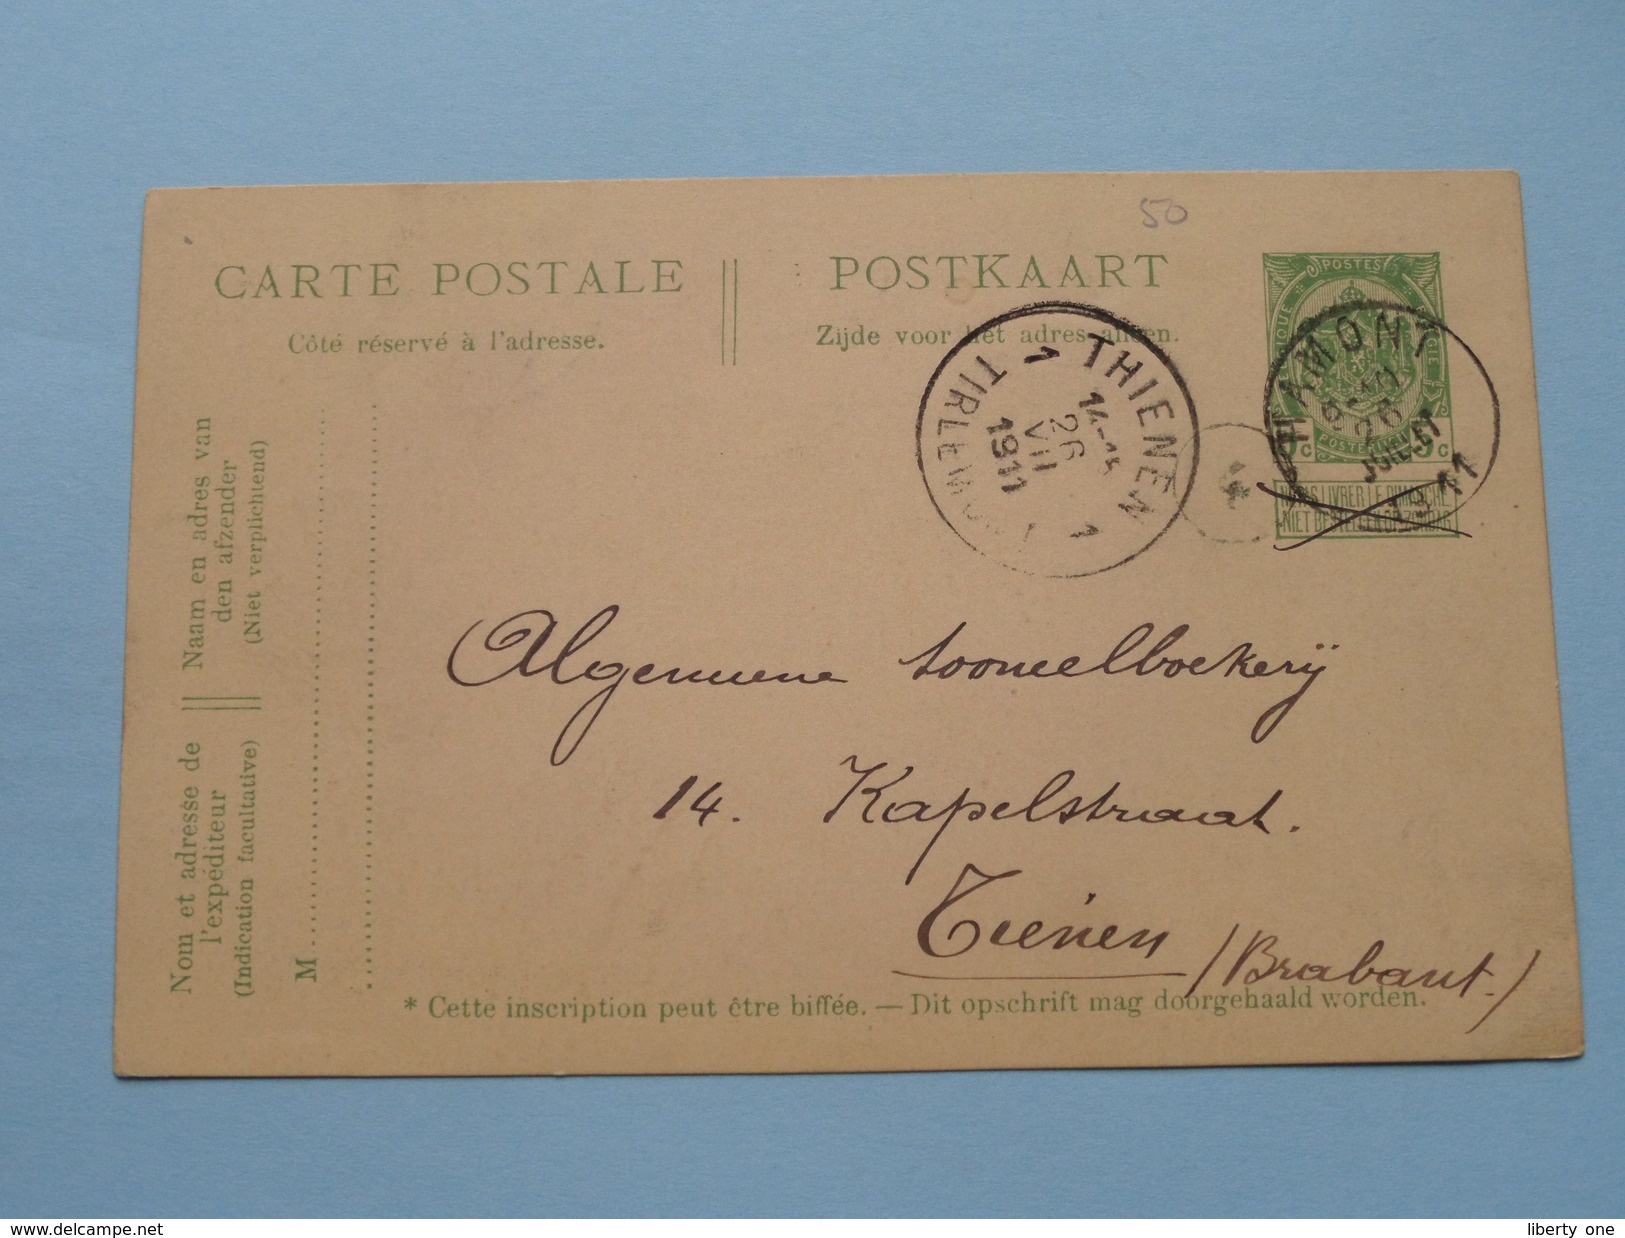 50
CARTE POSTALE
Côté réservé à l'adresse.
POSTKAART
Zijde voor het adres alleen.
POSTES
POSTERIJEN
5 c
NE PAS LIVRER LE DIMANCHE
NIET BESTELLEN OP ZONDAG
HAMONT
26
JUILLET
11
THIENEN
TIRLEMONT
1
1
14-15
26
VII
1911
4
Naam en adres van
den afzender
(Niet verplichtend)
Nom et adresse de
l'expéditeur
(Indication facultative)
M
Algemeene tooneelboekerij
14. Kapelstraat.
Tienen
(Brabant.)
* Cette inscription peut être biffée. — Dit opschrift mag doorgehaald worden.
www.delcampe.net
liberty one